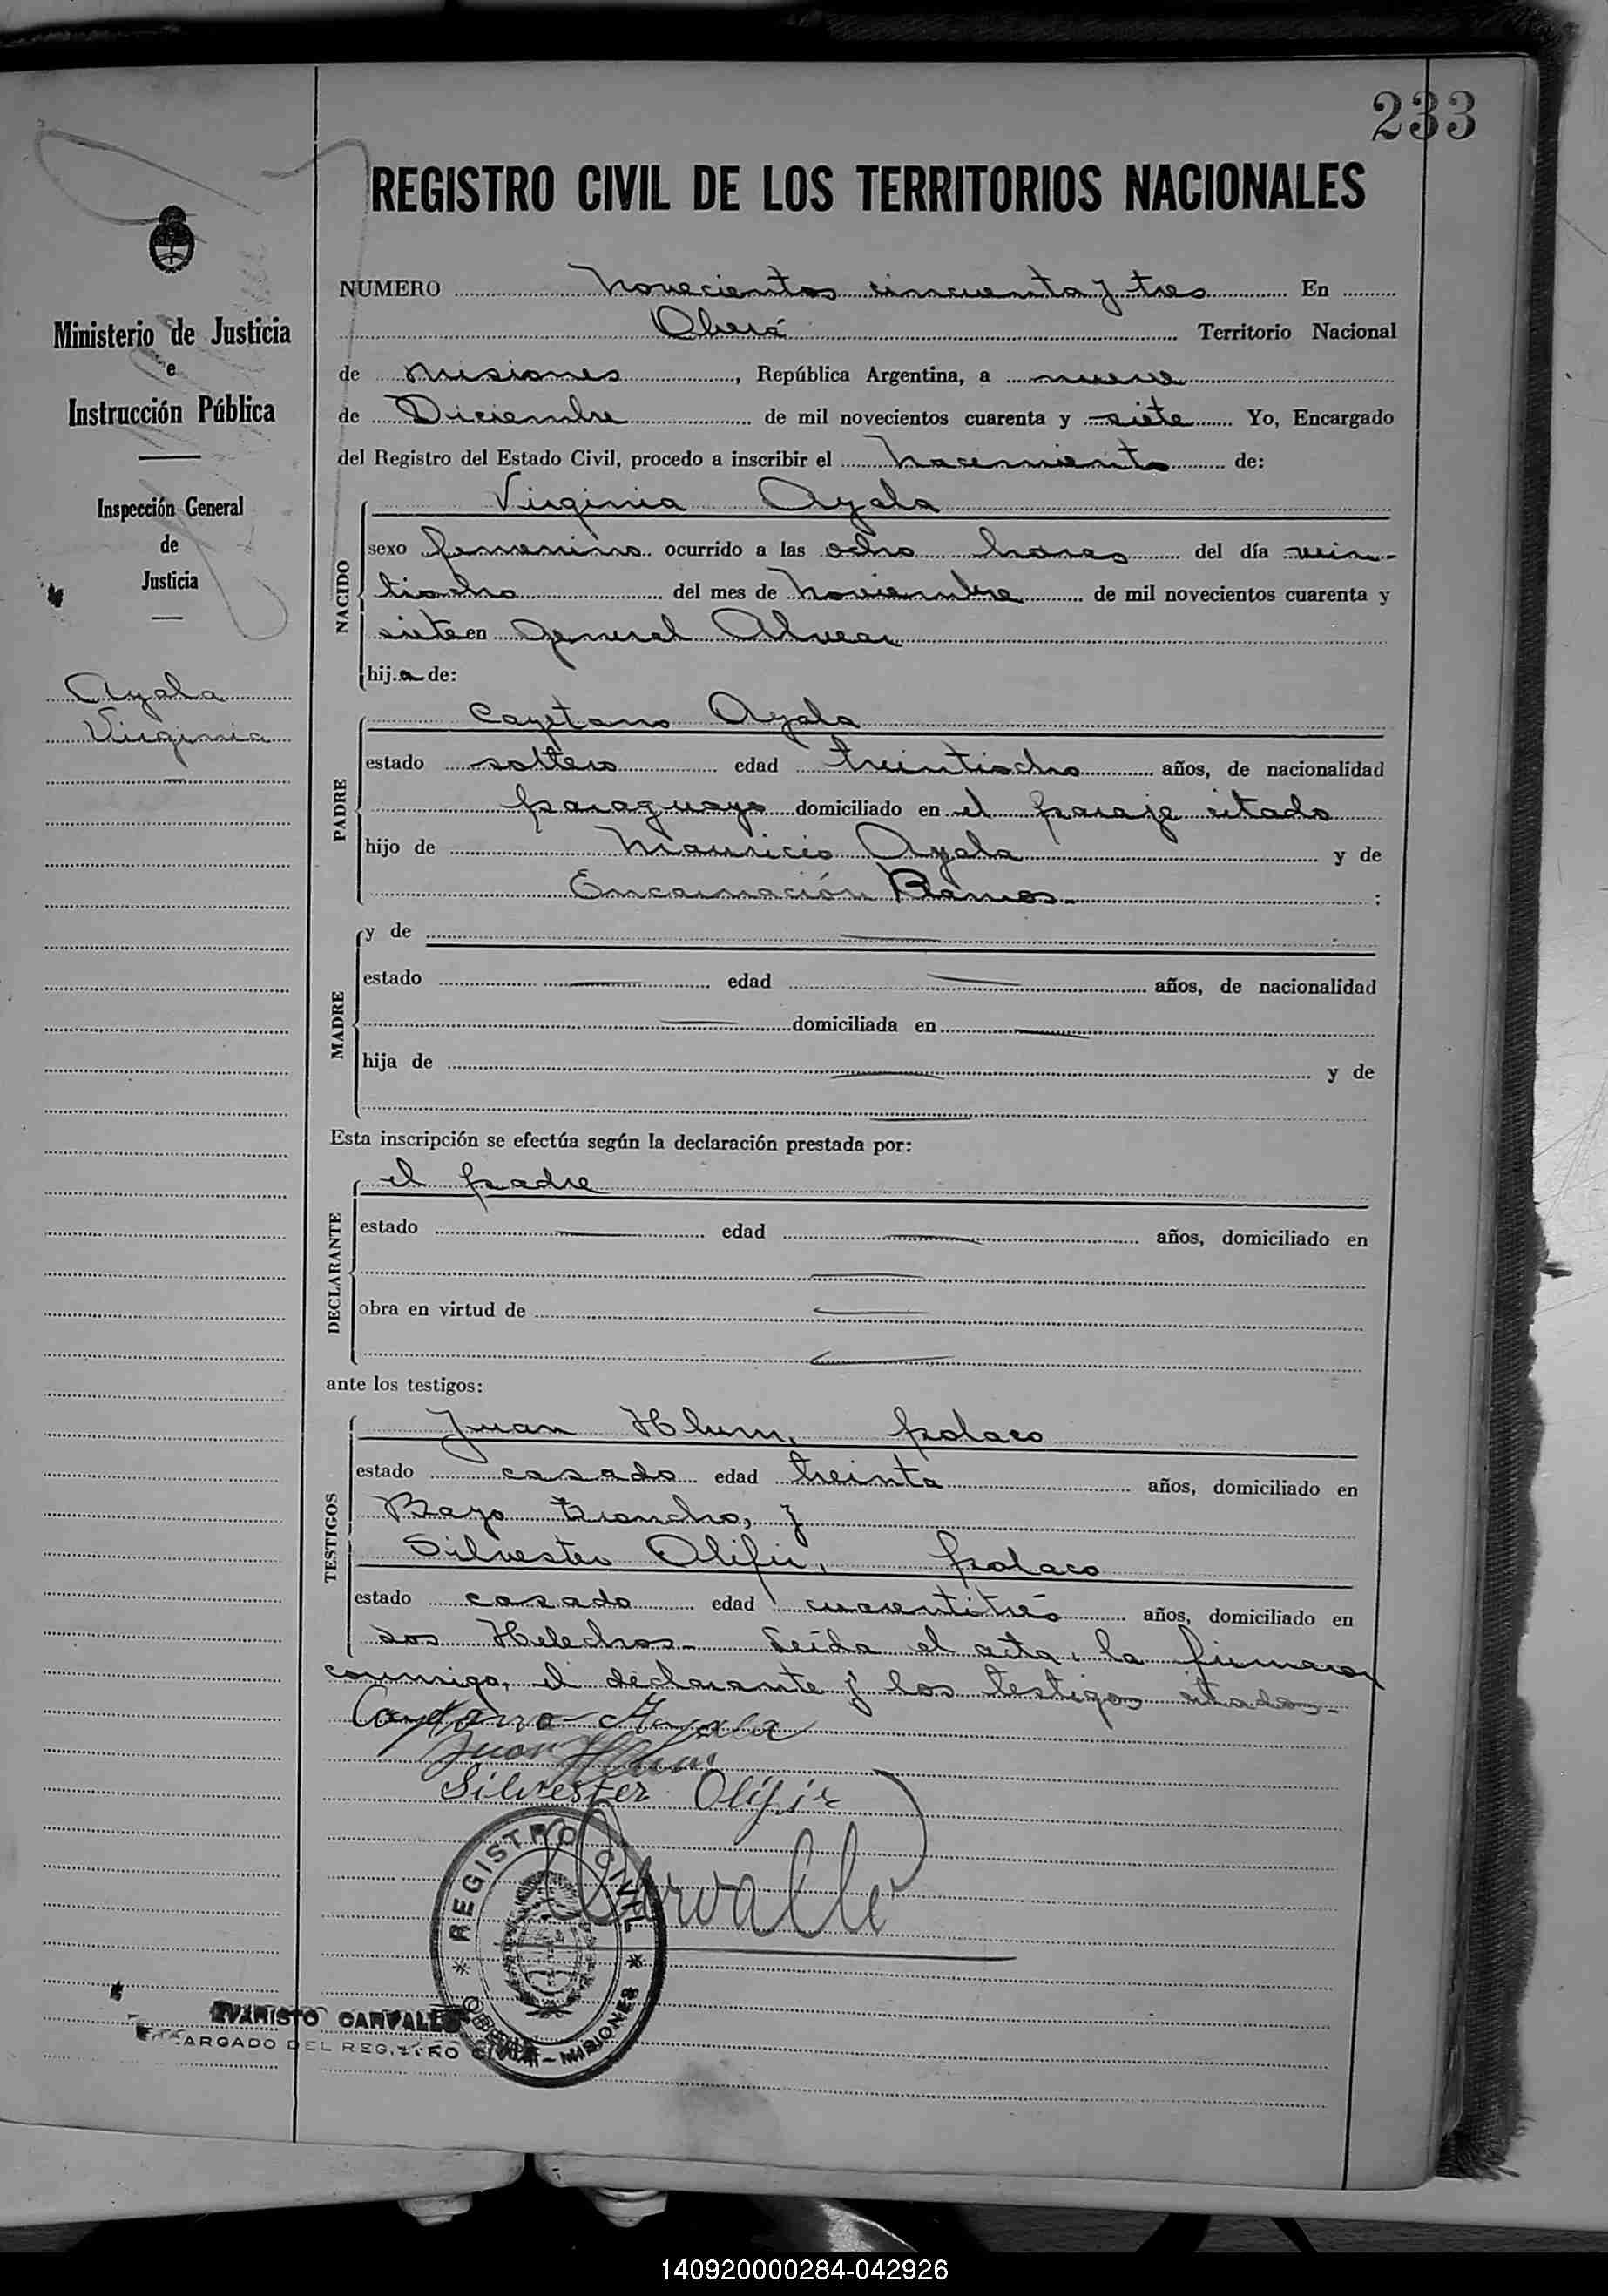 233
REGISTRO CIVIL DE LOS TERRITORIOS NACIONALES
Ministerio de Justicia
e
Instrucción Pública
Inspección General
de
Justicia
Ayala
Virginia
NUMERO Novecientos cincuenta y tres En
Oberá Territorio Nacional
de Misiones, República Argentina, a nueve
de Diciembre de mil novecientos cuarenta y siete Yo, Encargado
del Registro del Estado Civil, procedo a inscribir el Nacimiento de:
NACIDO
Virginia Ayala
sexo femenino ocurrido a las ocho horas del día vein-
tiocho del mes de Noviembre de mil novecientos cuarenta y
siete en General Alvear
hija de:
PADRE
Cayetano Ayala
estado soltero edad treintiocho años, de nacionalidad
paraguayo domiciliado en el paraje citado
hijo de Mauricio Ayala y de
Encarnación Ramos.- ;
MADRE
y de
estado edad años, de nacionalidad
domiciliada en
hija de y de
Esta inscripción se efectúa según la declaración prestada por:
DECLARANTE
el padre
estado edad años, domiciliado en
obra en virtud de
ante los testigos:
TESTIGOS
Juan Hlum, polaco
estado casado edad treinta años, domiciliado en
Bayo Troncho, y
Silvester Olifir, polaco
estado casado edad cuarentitrés años, domiciliado en
Los Helechos.- Leída el acta, la firmaron
conmigo, el declarante y los testigos citados.-
Caytano Ayala
Juan Hlum
Silvester Olifir
Carvallo
REGISTRO CIVIL
OBERÁ - MISIONES
EVARISTO CARVALLO
ENCARGADO DEL REGISTRO CIVIL
140920000284-042926